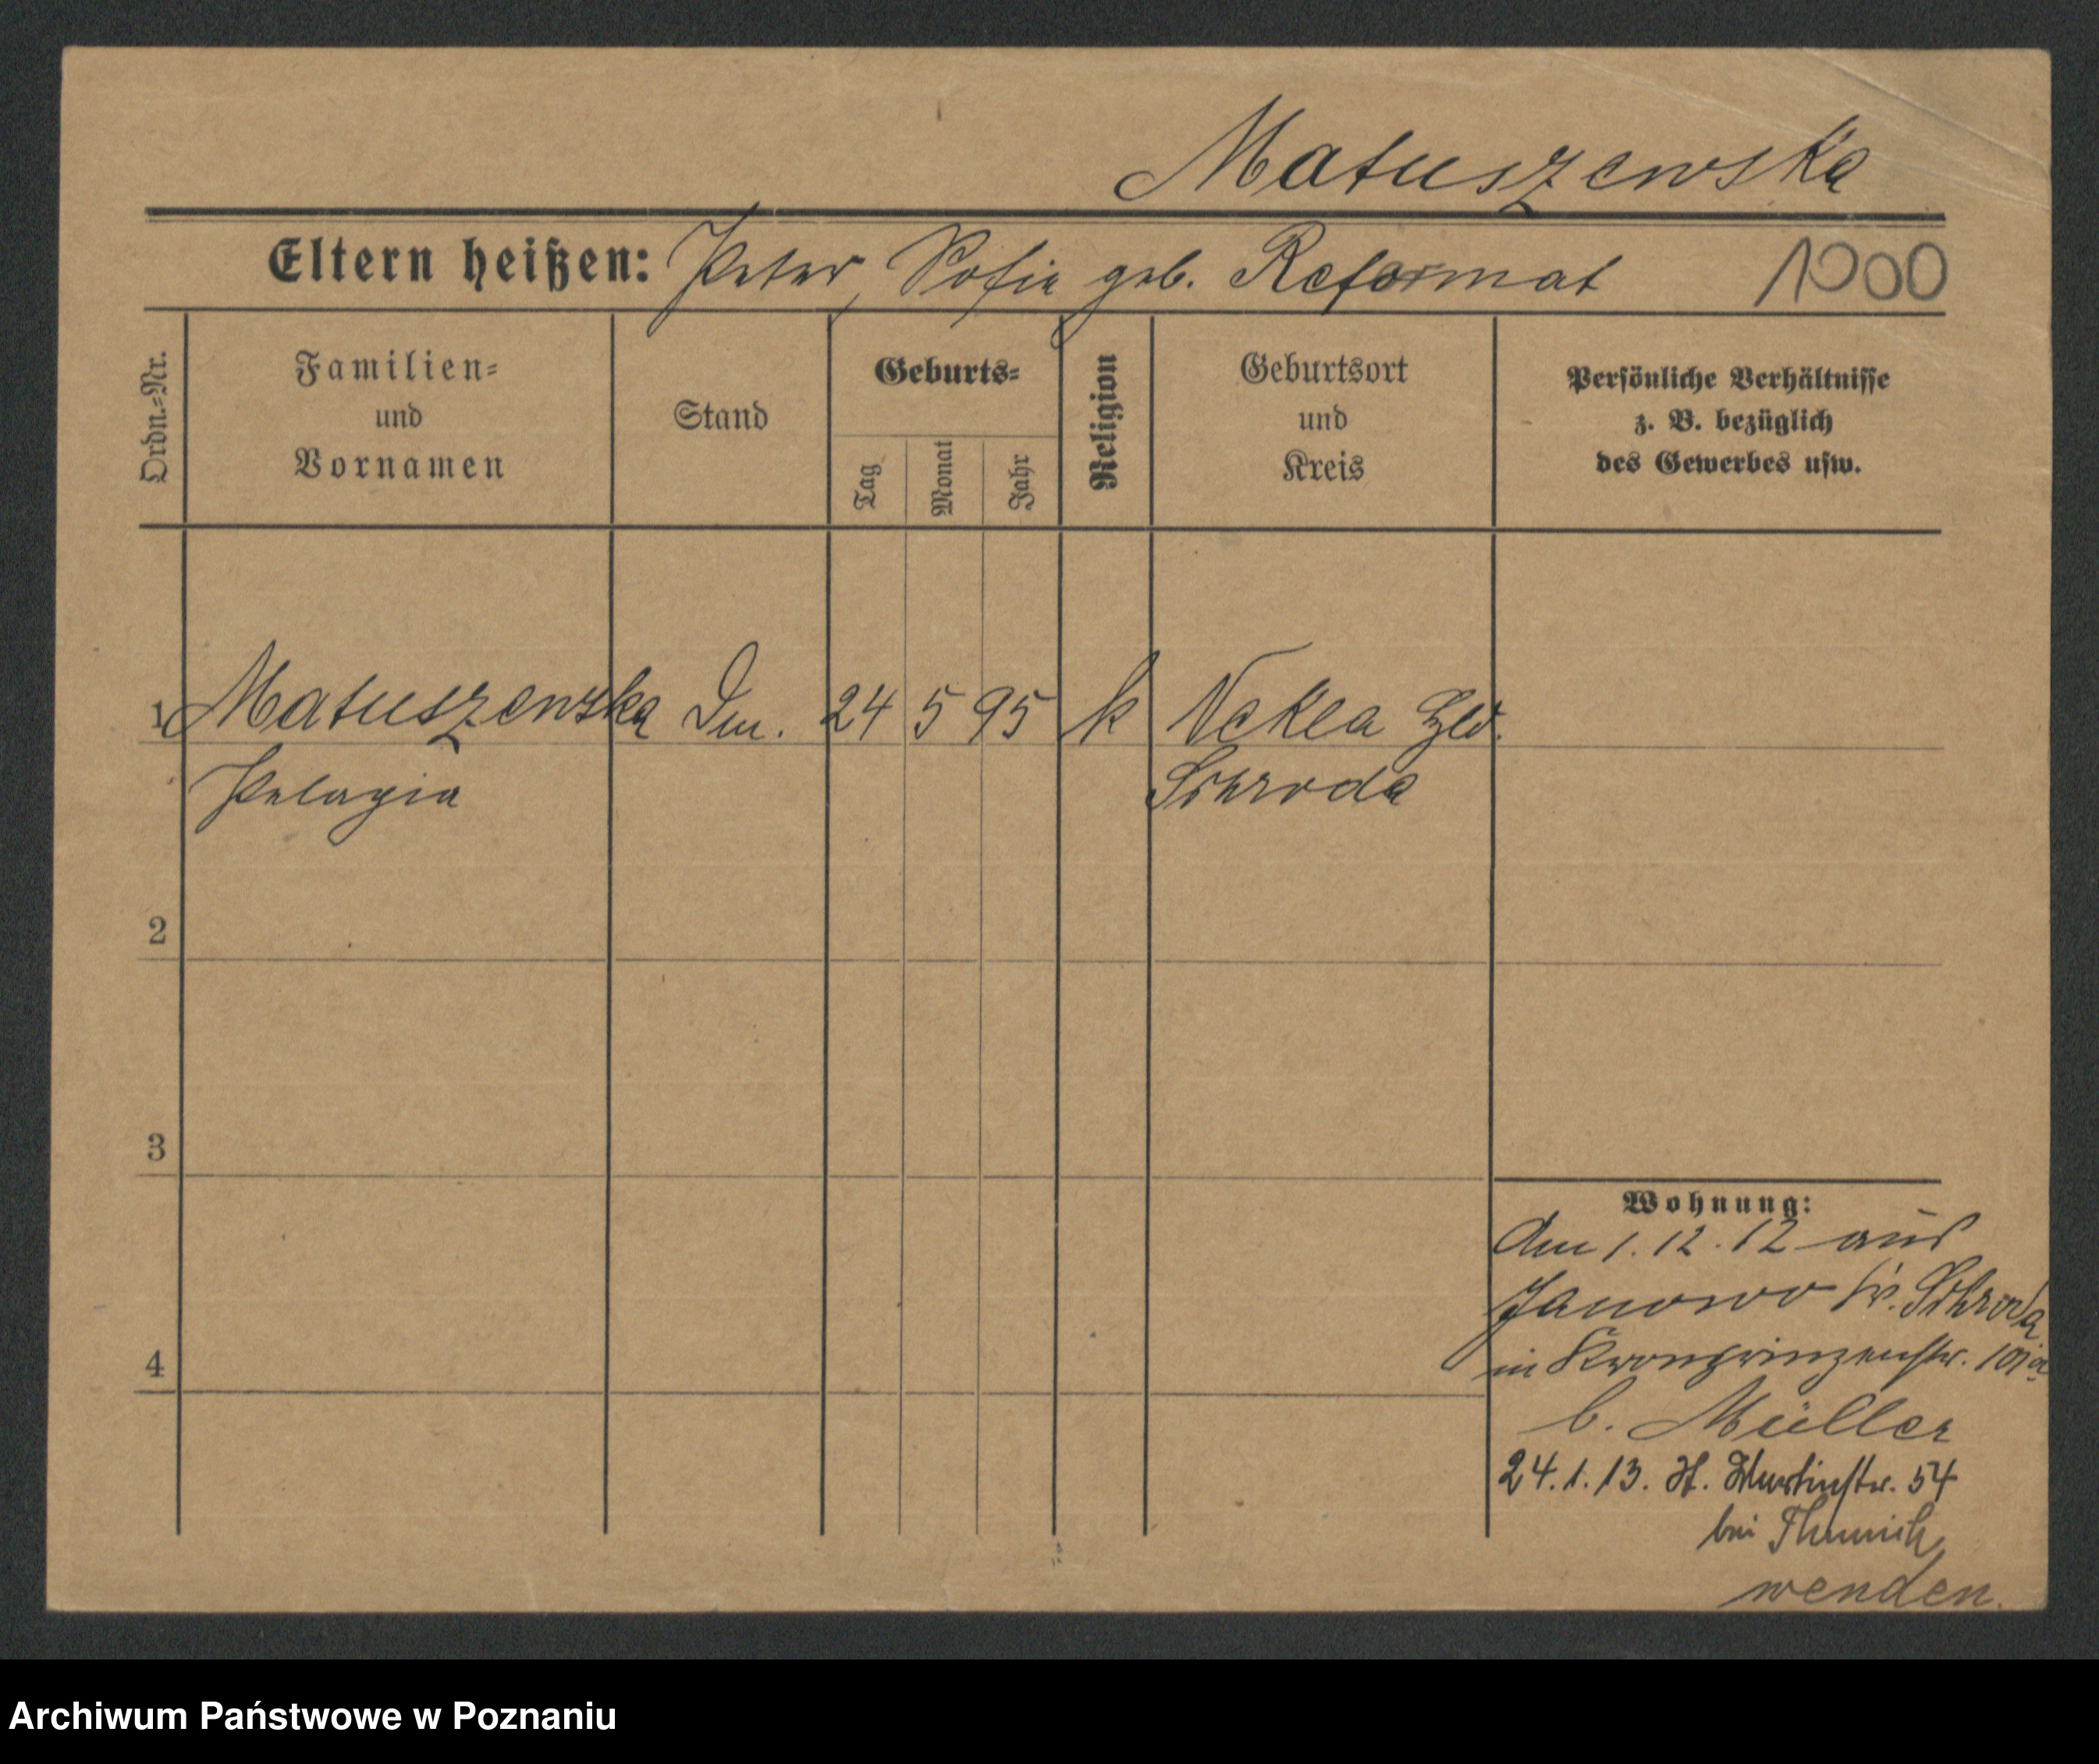 Matuszewska
Eltern heißen: Peter, Sofie geb. Reformat 1000
Ordn.-Nr.
Familien-
und
Vornamen
Stand
Geburts-
Tag
Monat
Jahr
Religion
Geburtsort
und
Kreis
Persönliche Verhältnisse
z. B. bezüglich
des Gewerbes usw.
1 Matuszewska 24 5 95 k Nekla Hld.
Pelagia Schroda
2
3
4
Wohnung:
Am 1.12.12 aus
Janowo Kr. Schroda
in Kronprinzenstr. 101a
b. Müller
24.1.13. St. Martinstr. 54
bei
wenden.
Archiwum Państwowe w Poznaniu